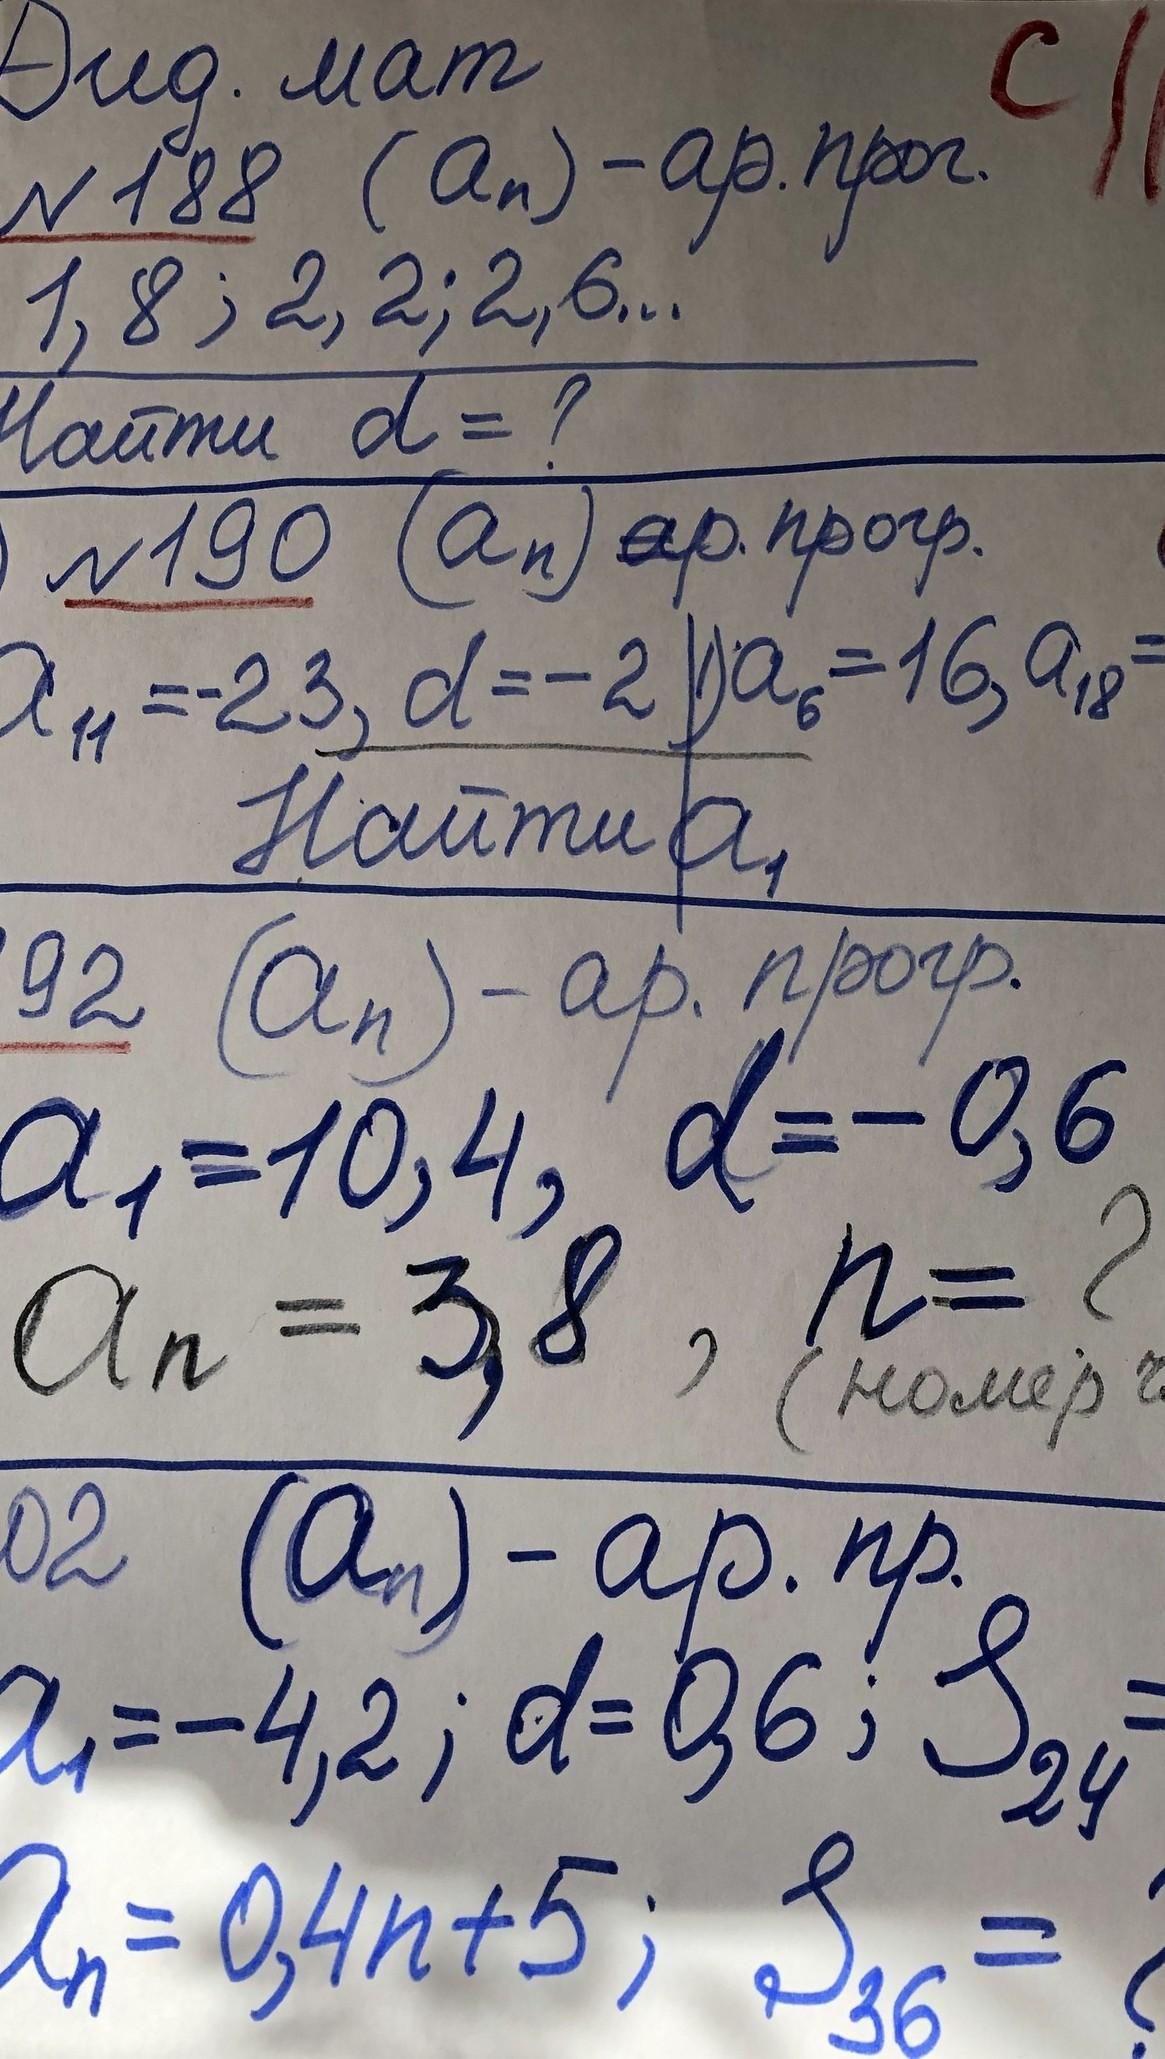 Дид. мат
С
№188 (aₙ) - ар. прог.
1,8; 2,2; 2,6...
Найти d = ?
) №190 (aₙ) ар. прогр.
a₁₁ = -23, d = -2 | 1) a₆ = 16, a₁₈ =
Найти a₁
92 (aₙ) - ар. прогр.
a₁ = 10,4, d = -0,6
aₙ = 3,8, n = ?
(номер
02 (aₙ) - ар. пр.
a₁ = -4,2; d = 0,6; S₂₄ =
aₙ = 0,4n + 5; S₃₆ = ?